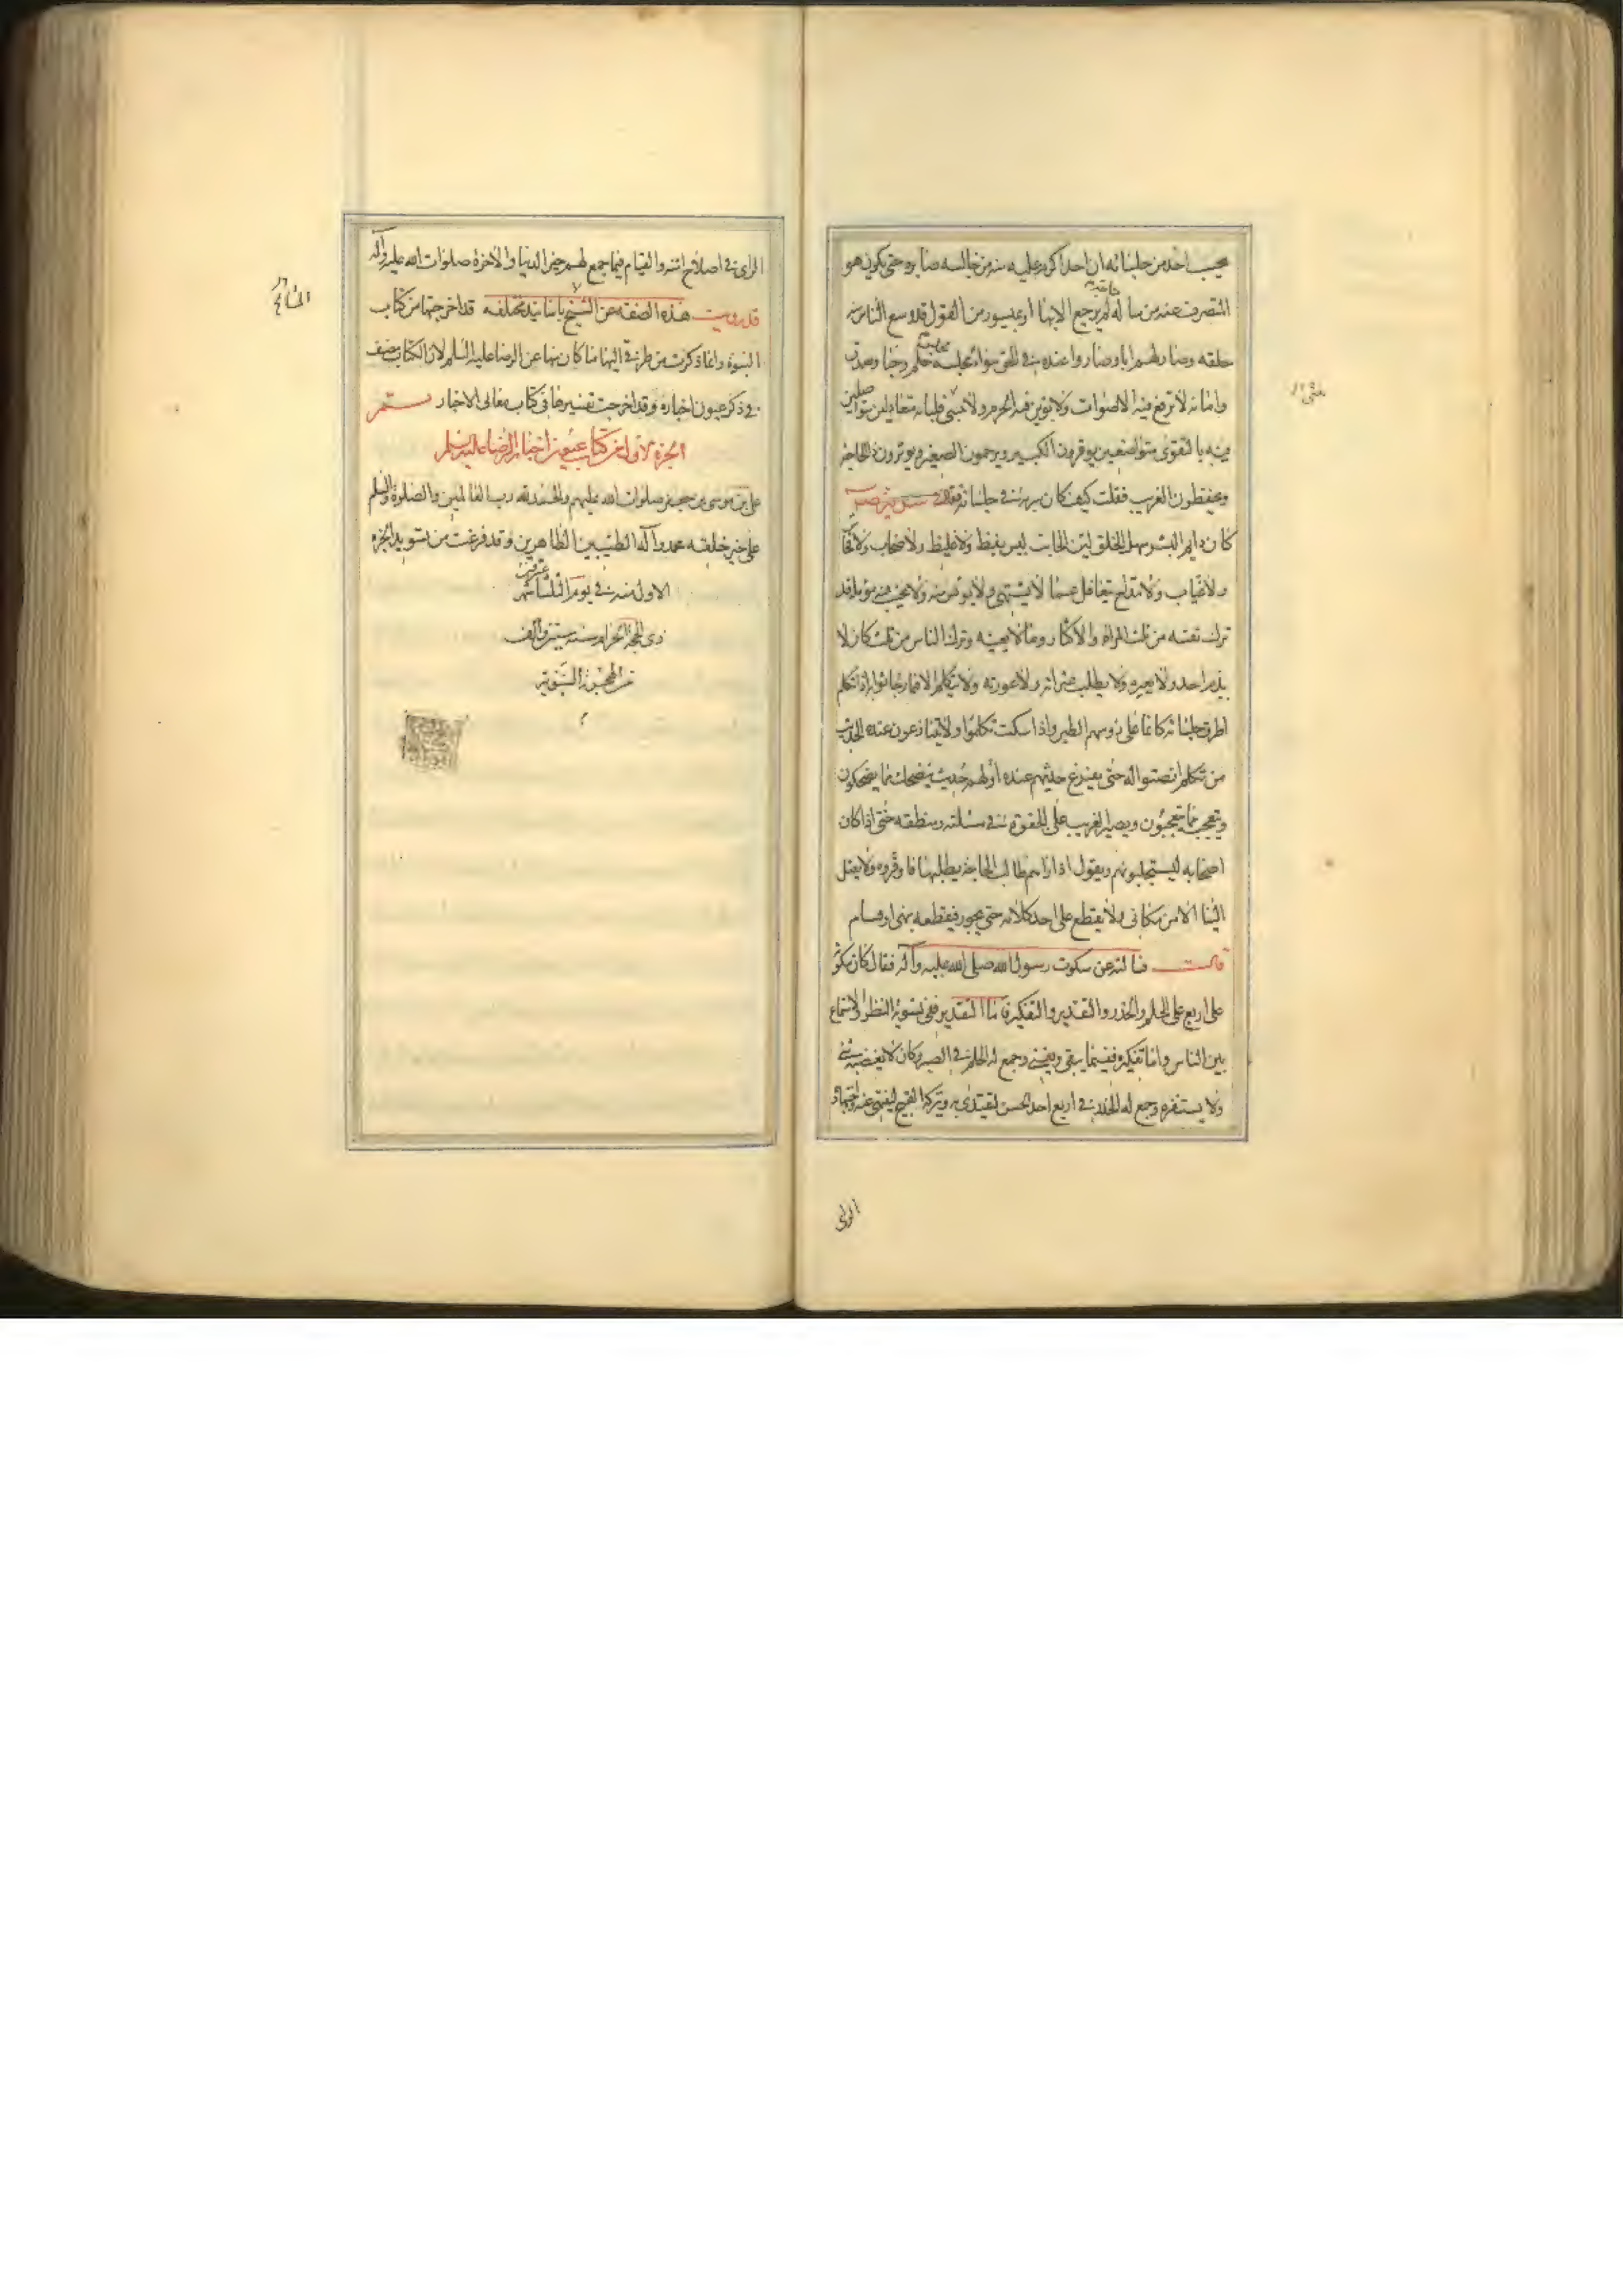 يحسب احد من جلسائه ان احدا اكرم عليه منه من جالسه صابره حتى يكون هو
المنصرف عنه من ساله لم يرجع الا بها او بميسور من القول قد وسع الناس منه
حاجة
خلقه وصار لهم ابا وصاروا عنده في الحق سواء مجلسه حلم وحيا وصدق
وامانه لا ترفع فيه الاصوات ولا توبن فيه الحرم ولا فلتاته متعادلين متواصلين
فيه بالتقوى متواضعين يوقرون الكبير ويرحمون الصغير ويوثرون ذا الحاجة
ويحفظون الغريب فقلت كيف كان سيرته في جلسائه فقال
كان دايم البشر سهل الخلق لين الجانب ليس بفظ ولا غليظ ولا صخاب ولا فحاش
ولا عياب ولا مداح يتغافل عما لا يشتهي ولا يويس منه ولا يخيب منه مؤمليه قد
ترك نفسه من ثلث المراء والاكثار وما لا يعنيه وترك الناس من ثلث كان لا
يذم احدا ولا يعيره ولا يطلب عثراته ولا عورته ولا يتكلم الا فيما رجا ثوابه اذا تكلم
اطرق جلساؤه كانما على رؤسهم الطير واذا سكت تكلموا ولا يتنازعون عنده الحديث
من تكلم انصتوا له حتى يفرغ حديثهم عنده اولهم يضحك مما يضحكون
ويتعجب مما يتعجبون ويصبر للغريب على الجفوة في مسئلته ومنطقه حتى اذا كان
اصحابه ليستجلبونهم ويقول اذا رايتم طالب الحاجة يطلبها فارفدوه ولا يقبل
الثنا الا من مكافي ولا يقطع على احد كلامه حتى يجوز فيقطعه بنهى او قيام
قال فسالته عن سكوت رسول الله صلى الله عليه وآله فقال كان سكوته
على اربع على الحلم والحذر والتقدير والتفكير فاما التقدير ففي تسوية النظر والاستماع
بين الناس واما تفكره ففيما يبقى ويفنى وجمع له الحلم في الصبر وكان لا يغضبه شئ
ولا يستفزه وجمع له الحذر في اربع اخذه الحسن ليقتدى به وتركه القبيح لينتهى عنه واجتهاده
الراى
الراى في اصلاح امته والقيام فيما جمع لهم خير الدنيا والاخرة صلوات الله عليه وآله
قد رويت هذه الصفة عن المشايخ باسانيد مختلفه قد اخرجتها من كتاب
المشايخ
النبوة وانما ذكرت من طرقي اليها ما كان منها عن الرضا عليه السلم لان الكتاب يصنف
في ذكر عيون اخباره وقد اخرجت تفسيرها في كتاب معاني الاخبار تم
الجزء الاول من كتاب عيون اخبار الرضا عليه السلم
علي بن موسى بن جعفر صلوات الله عليهم والحمد لله رب العالمين والصلوة والسلم
على خير خلقه محمد وآله الطيبين الطاهرين وقد فرغت من تسويد الجزء
الاول منه في يوم الثلثا شهر
ذي الحجة الحرام سنه ستين والف
من الهجرة النبوية